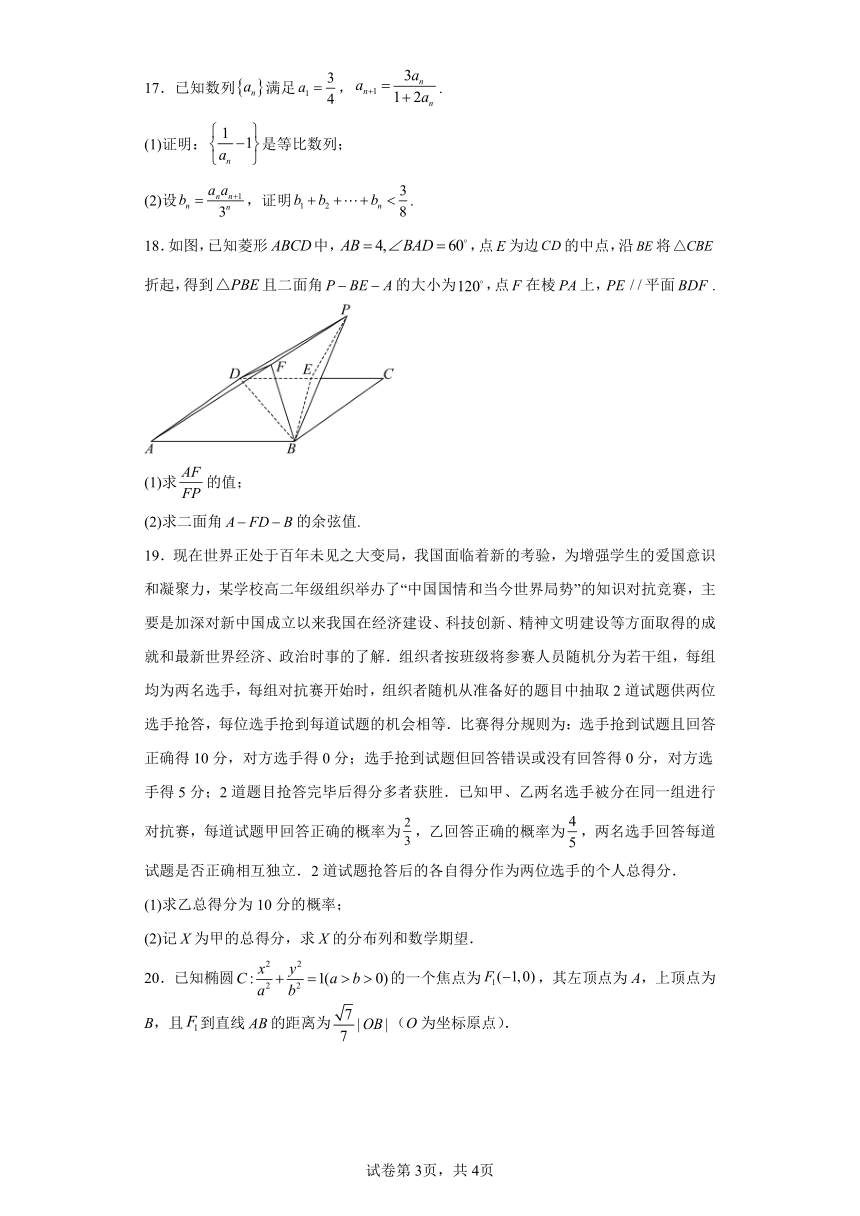 17．已知数列{aₙ}满足a₁ = 3/4，aₙ₊₁ = 3aₙ/(1+2aₙ)．
(1)证明：{1/aₙ − 1}是等比数列；
(2)设bₙ = aₙaₙ₊₁/3ⁿ，证明b₁ + b₂ + ⋯ + bₙ < 3/8．
18．如图，已知菱形ABCD中，AB = 4,∠BAD = 60°，点E为边CD的中点，沿BE将△CBE
折起，得到△PBE且二面角P − BE − A的大小为120°，点F在棱PA上，PE // 平面BDF．
P
D F E C
A B
(1)求AF/FP的值；
(2)求二面角A − FD − B的余弦值.
19．现在世界正处于百年未见之大变局，我国面临着新的考验，为增强学生的爱国意识
和凝聚力，某学校高二年级组织举办了“中国国情和当今世界局势”的知识对抗竞赛，主
要是加深对新中国成立以来我国在经济建设、科技创新、精神文明建设等方面取得的成
就和最新世界经济、政治时事的了解．组织者按班级将参赛人员随机分为若干组，每组
均为两名选手，每组对抗赛开始时，组织者随机从准备好的题目中抽取2道试题供两位
选手抢答，每位选手抢到每道试题的机会相等．比赛得分规则为：选手抢到试题且回答
正确得10分，对方选手得0分；选手抢到试题但回答错误或没有回答得0分，对方选
手得5分；2道题目抢答完毕后得分多者获胜．已知甲、乙两名选手被分在同一组进行
对抗赛，每道试题甲回答正确的概率为2/3，乙回答正确的概率为4/5，两名选手回答每道
试题是否正确相互独立．2道试题抢答后的各自得分作为两位选手的个人总得分．
(1)求乙总得分为10分的概率；
(2)记X为甲的总得分，求X的分布列和数学期望．
20．已知椭圆C : x²/a² + y²/b² = 1(a > b > 0)的一个焦点为F₁(−1,0)，其左顶点为A，上顶点为
B，且F₁到直线AB的距离为√7/7|OB|（O为坐标原点）．
试卷第3页，共4页